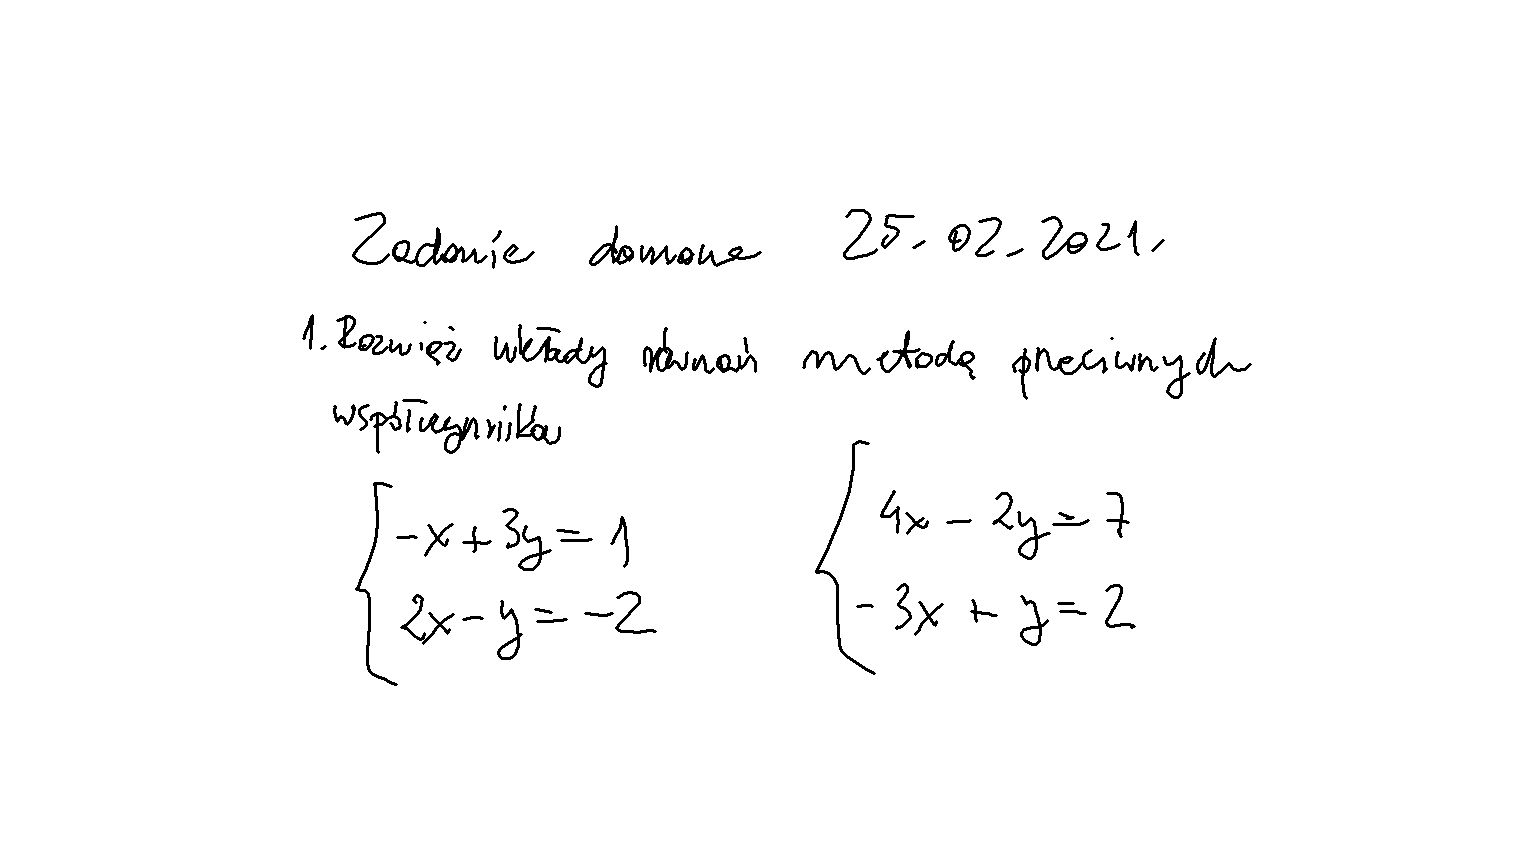 Zadanie domowe 25.02.2021.
1. Rozwiąż układy równań metodą przeciwnych
współczynników
-x + 3y = 1
2x - y = -2
4x - 2y = 7
-3x + y = 2